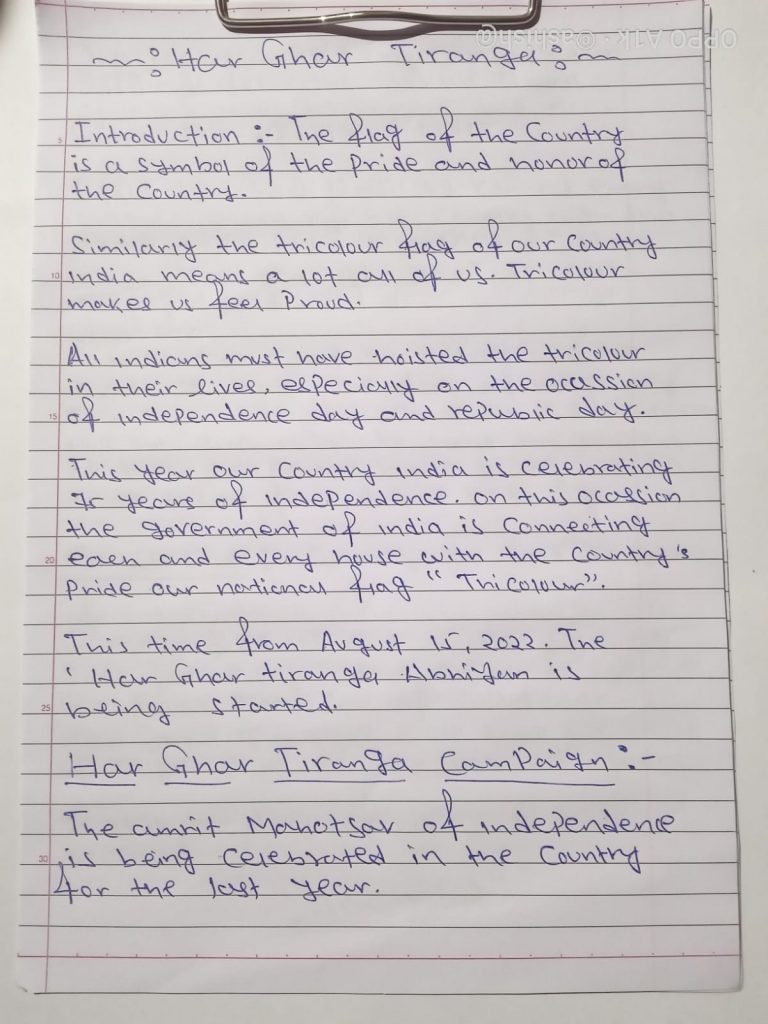 OPPO A1k · @ashish@
~:Har Ghar Tiranga:~
5
Introduction :- The flag of the Country
is a symbol of the Pride and honor of
the Country.
Similarly the tricolour flag of our Country
10
india means a lot all of us. Tricolour
makes us feel Proud.
All indians must have hoisted the tricolour
in their lives, especially on the ocassion
15
of independence day and republic day.
This year our Country india is celebrating
75 years of independence. on this ocassion
the government of india is connecting
20
each and every house with the Country's
Pride our national flag "Tricolour".
This time from August 15, 2022. The
' Har Ghar tiranga Abhiyan is
25
being started.
Har Ghar Tiranga CamPaign :-
The amrit Mahotsav of independence
30
is being Celebrated in the Country
for the last year.